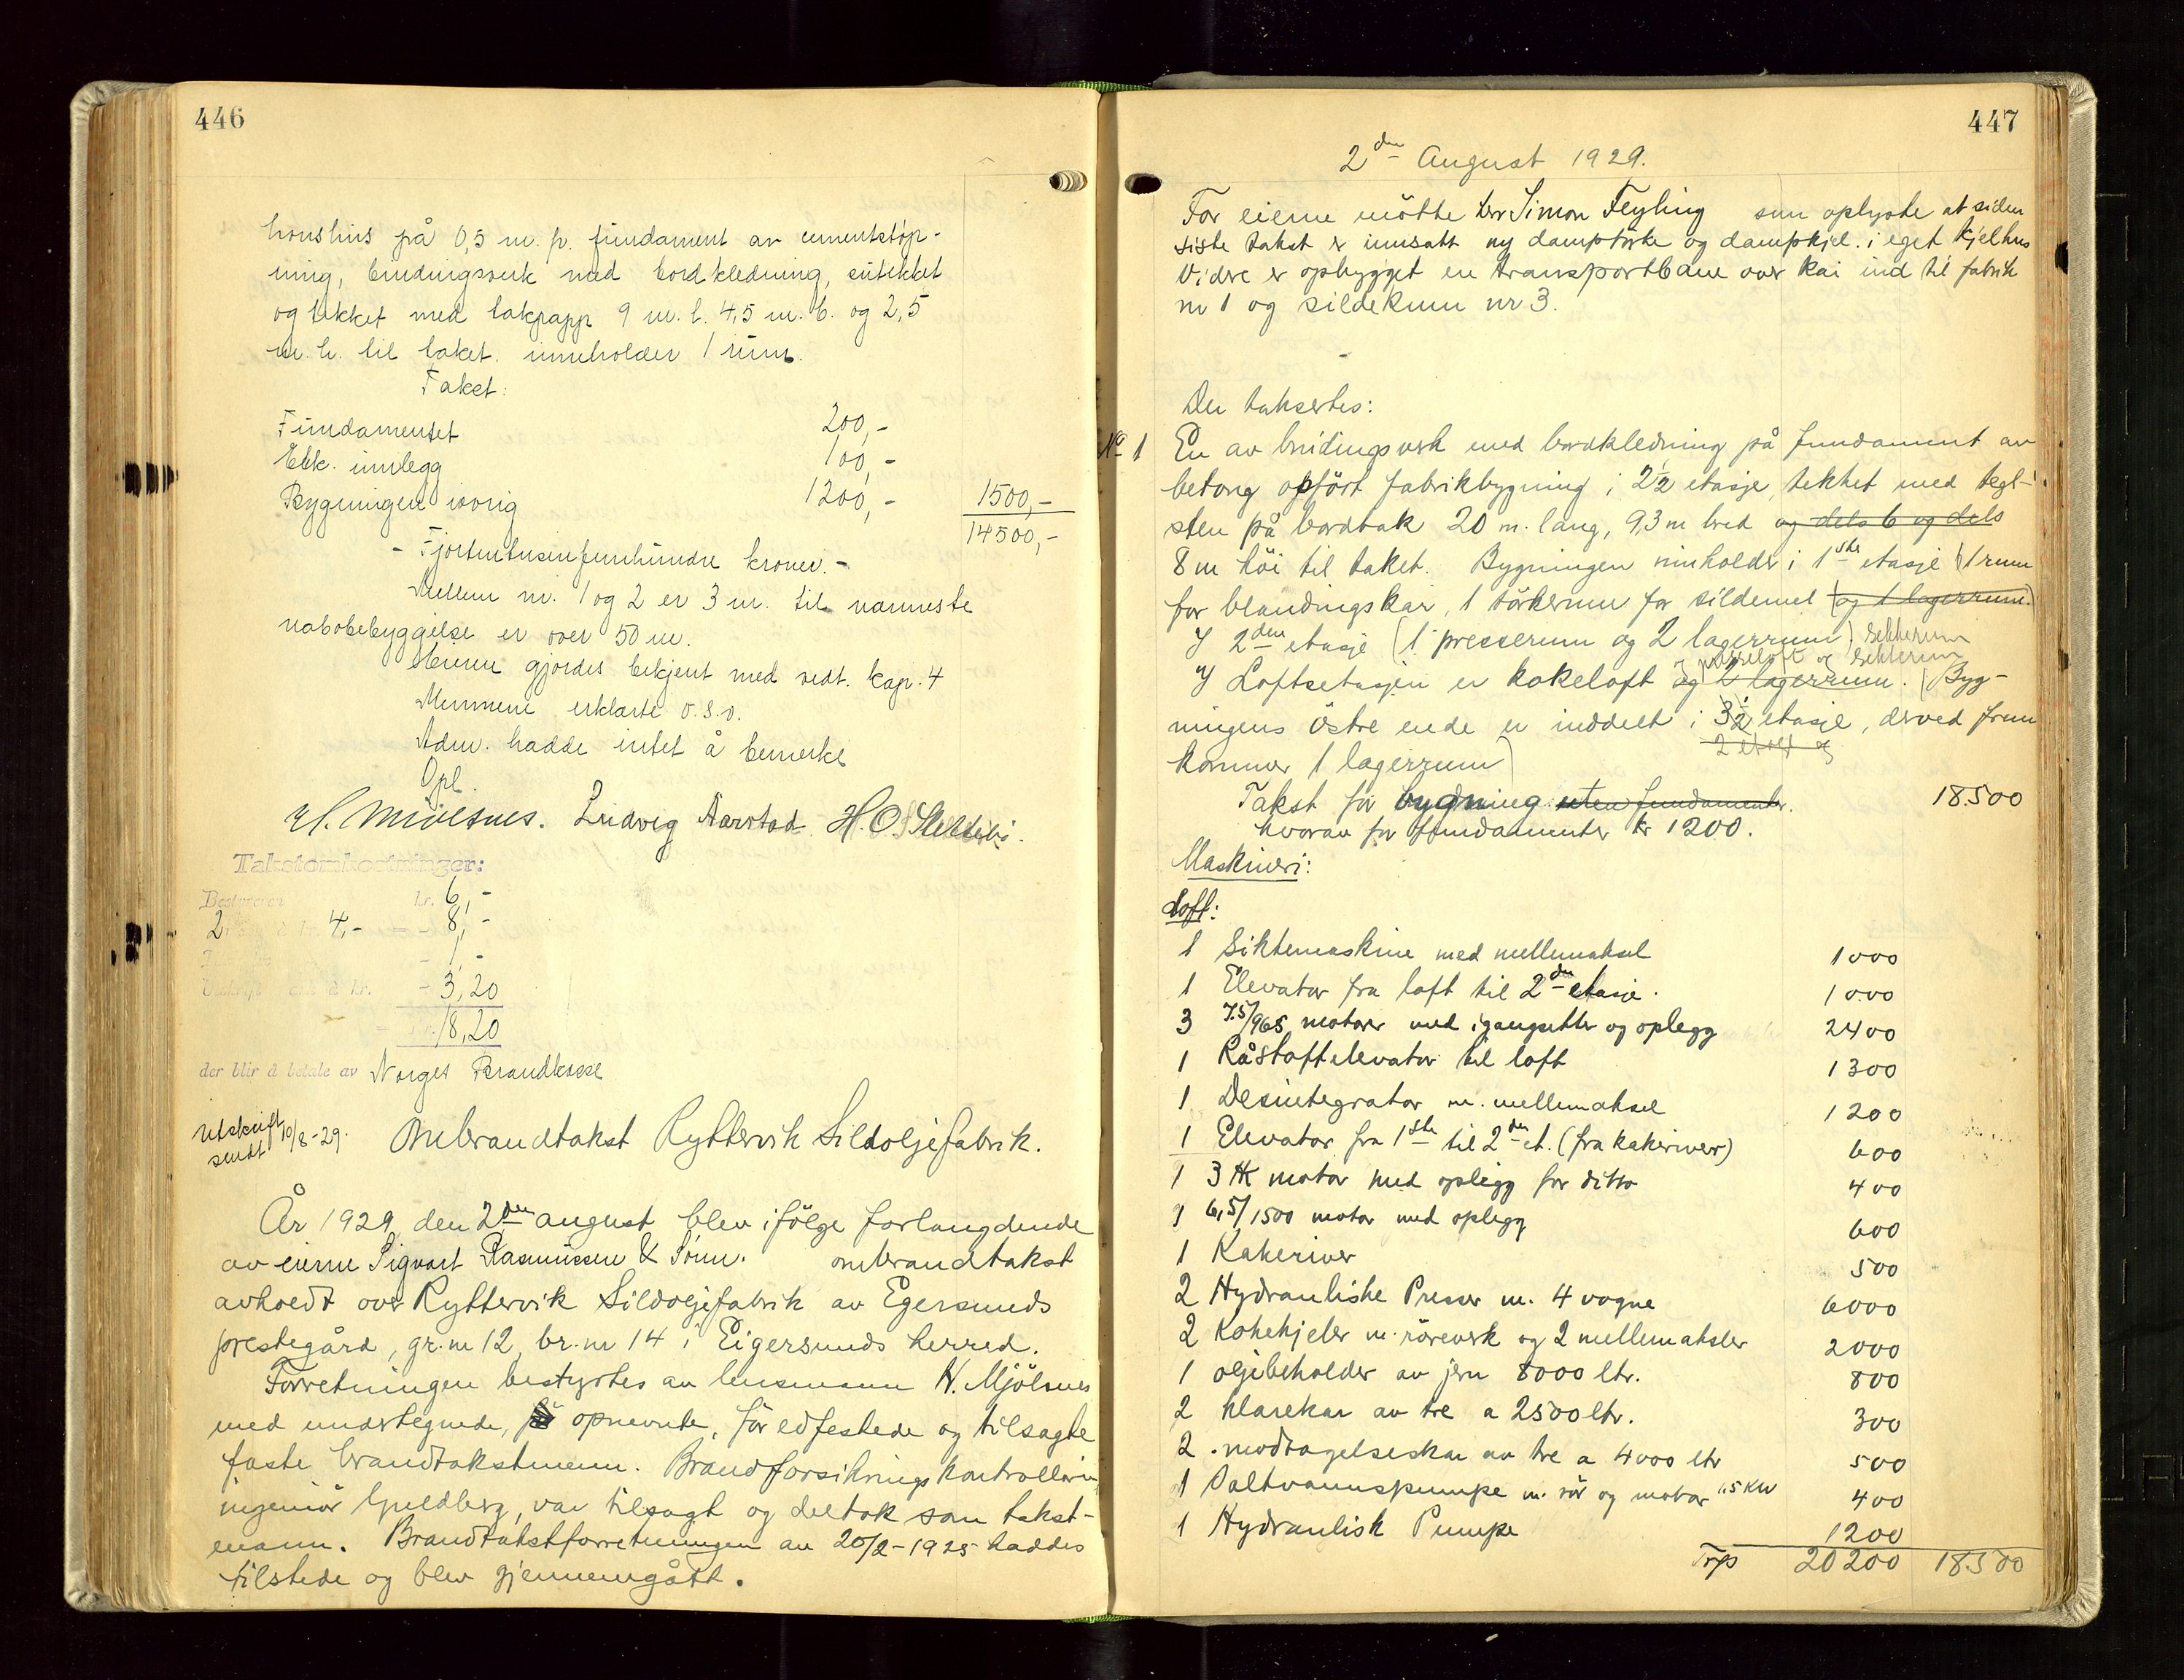 446
hønshus på 0,5 m. h. fundament av cementstøp-
ning, bindingsverk med bordkledning, sutekket
og tekket med takpapp 9 m. l. 4,5 m. b. og 2,5
m. h. til taket. inneholder 1 rum.
Taket:
Fundamentet 200,-
Elek. innlegg 100,-
Bygningen iøvrig 1200,- 1500,-
14500,-
- Fjortentusenfemhundre kroner. -
Mellem nr. 1 og 2 er 3 m. til nærmeste
nabobebyggelse er over 50 m.
Eieren gjordes bekjent med vedt. kap. 4
Mennene erklærte o.s.v.
Adm. hadde intet å bemerke
Opl.
H. Mjølsnes. Ludvig Aarstad H. O.
Takstomkostninger:
Bestyreren kr. 6,-
2 à kr. 4,- - 8,-
- 1,-
Utskrift à kr. - 3,20
18,20
der blir å betale av Norges Brandkasse
Utskrift 10/8-29.
sendt
Ombrandtakst Ryttervik Sildoljefabrik.
År 1929, den 2den august blev ifølge forlangdende
av eierne Sigvart Rasmussen & Sønn. ombrandtakst
avholdt over Ryttervik Sildoljefabrik av Egersunds
prestegård, gr. nr 12, br. nr 14 i Eigersunds herred.
Forretningen bestyrtes av lensmann H. Mjölsnes
med undertegnede, opnevnte, før edfestede og tilsagte
faste brandtakstmenn. Brandforsikringskontrollørin
ingeniør Guldberg, var tilsagt og deltok som takst-
mann. Brandtakstforretningen av 20/2-1925 haddes
tilstede og blev gjennemgått.
447
2den August 1929.
For eierne mötte herr Simon Feyling som oplyste at siden
siste takst er innsatt ny damptörke og dampkjel. i eget kjelhus
Videre er opbygget en transportbane over kai ind til fabrik
nr 1 og sildekum nr 3.
Der taksertes:
No 1 En av bindingsverk med bordkledning på fundament av
betong opfört fabrikbygning i 2½ etasje, tekket med tegl-
sten på bordtak 20 m. lang, 9,3 m bred og dels 6 og dels
8 m höi til taket. Bygningen innholder i 1ste etasje (1 rum
for blandingskar, 1 törkerum for sildemel (og 1 lagerrum.)
I 2den etasje (1 presserum og 2 lagerrum) sekkerum
og presseloft og sekkerum
I Loftsetasjen er kokeloft og 2 lagerrum. (Byg-
ningens östre ende er inddelt i 3½ etasje, derved frem
2 etasj og
kommer 1 lagerrum)
Takst for bygning uten fundamenter. 18.500
hvorav for fundamenter kr 1200.
Maskineri:
Loft:
1 Siktemaskine med mellemaksel 1000
1 Elevator fra loft til 2den etasje. 1000
3 7.5/965 motorer med igangsetter og oplegg 2400
1 Råstoffelevator til loft 1300
1 Desintegrator m. mellemaksel 1200
1 Elevator fra 1ste til 2den et. (fra kakeriver) 600
1 3 HK motor med oplegg for ditto 400
1 6,5/1500 motor med oplegg 600
1 Kakeriver 500
2 Hydrauliske Presser m. 4 vogne 6000
2 Kokekjeler m. röreverk og 2 mellemaksler 2000
1 oljebeholder av jern 8000 ltr. 800
2 klarekar av tre a 2500 ltr. 300
2 modtagelseskar av tre a 4000 ltr 500
1 Saltvannspumpe m. rör og motor 1.5 KW 400
1 Hydraulisk Pumpe 1200
Trps 20200 18500